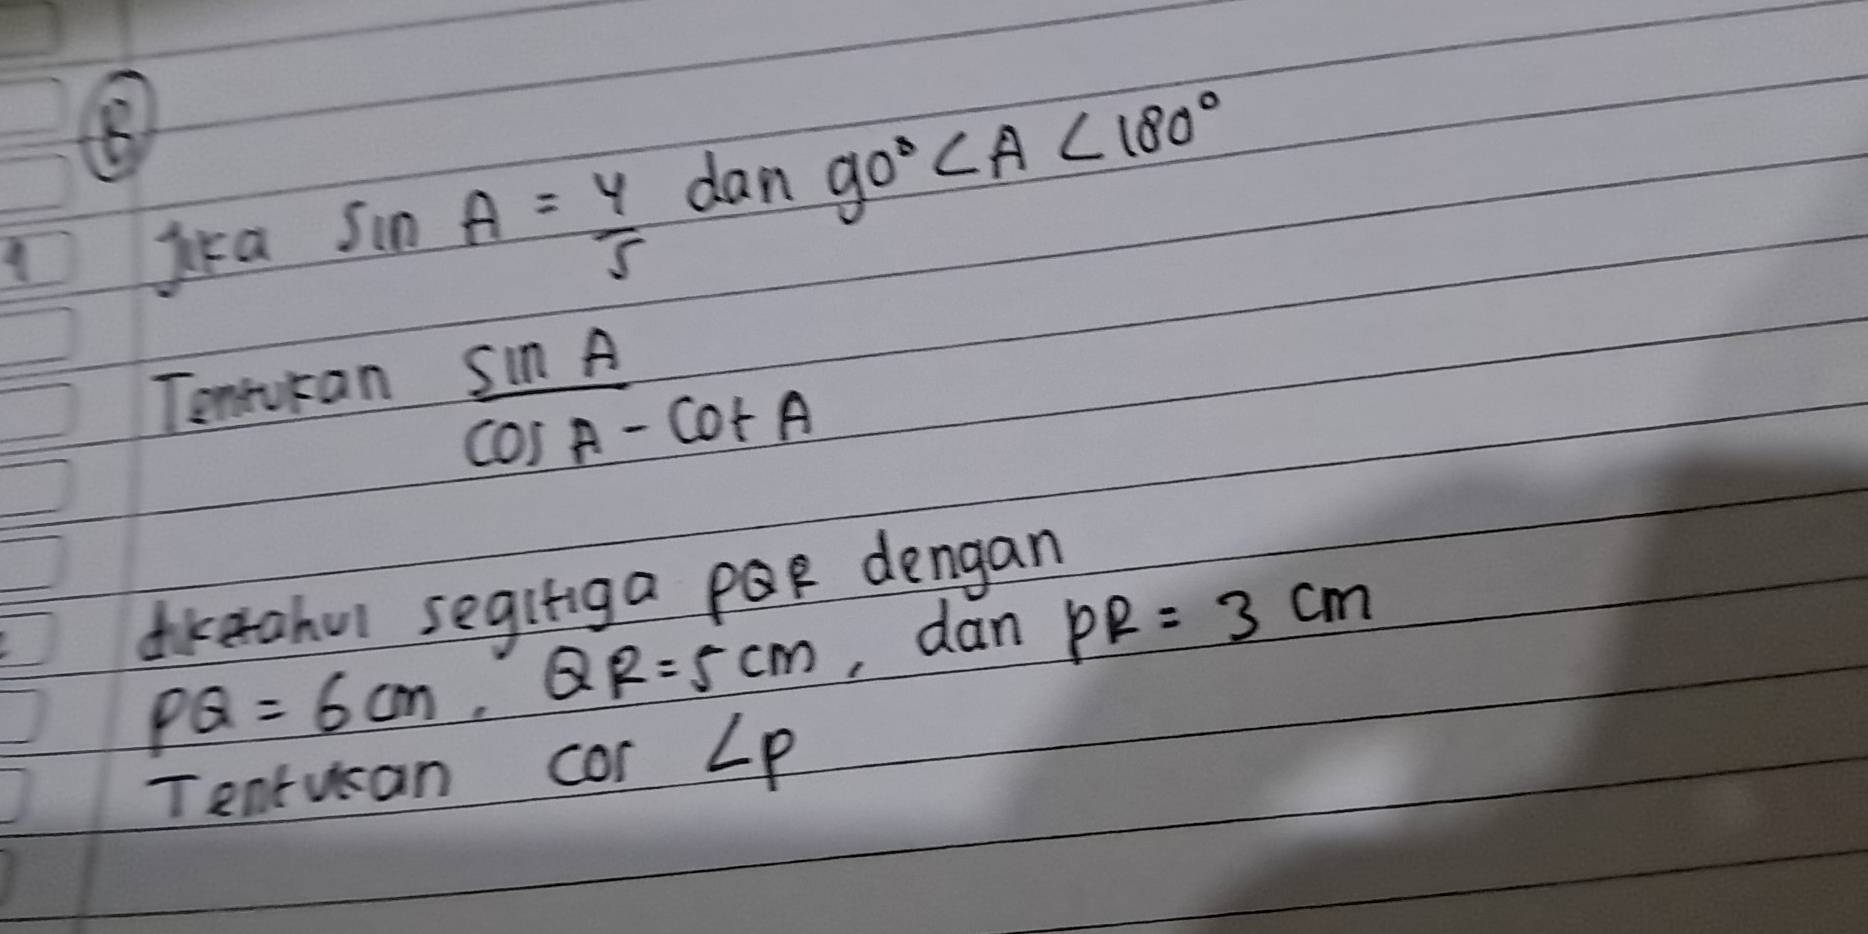 B
1 Jika Sin A = 4/5 dan 90° < A < 180°
Tentukan Sin A / Cos A - Cot A
diketahui segitiga PQR dengan
PQ = 6 cm, QR = 5 cm, dan PR = 3 cm
Tentukan cos ∠P